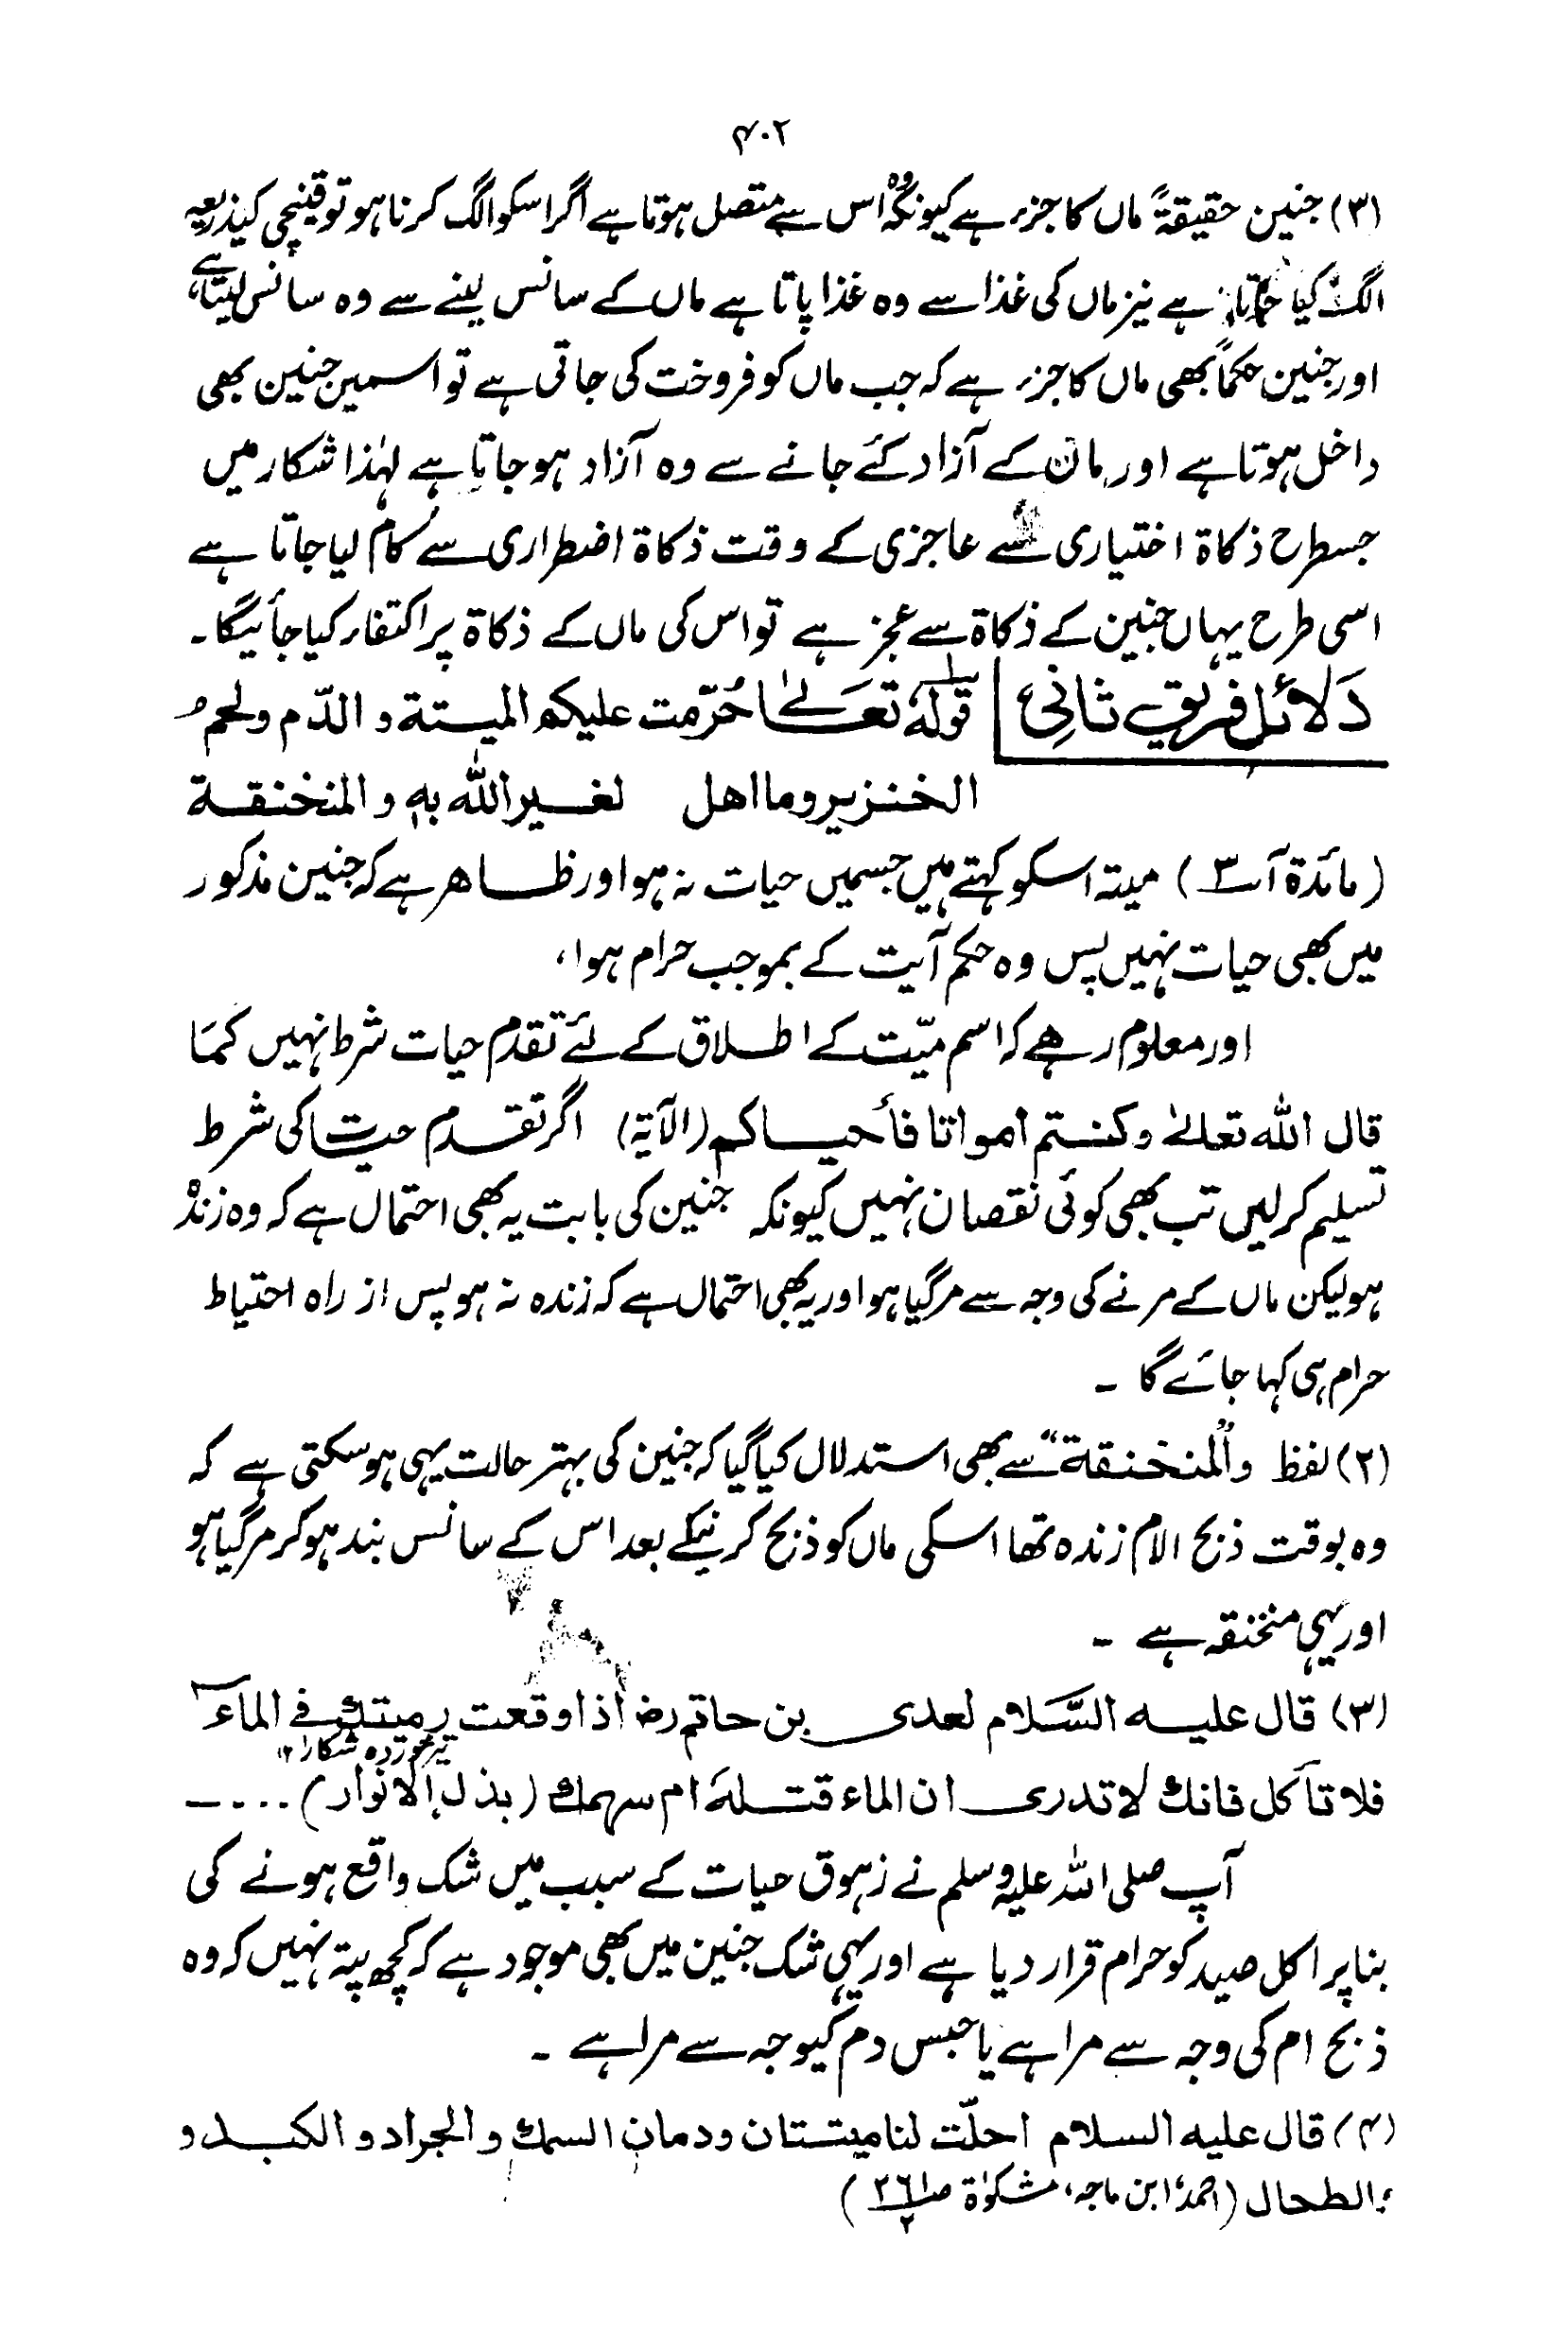 ۴۰۲
(۳) جنین حقیقۃً ماں کا جزء ہے کیونکہ وہ اس سے متصل ہوتا ہے اگر اسکو الگ کرنا ہو تو قینچی کیذریعہ
الگ کیا جاتا ہے نیز ماں کی غذا سے وہ غذا پاتا ہے ماں کے سانس لینے سے وہ سانس لیتا ہے،
اور جنین حکماً بھی ماں کا جزء ہے کہ جب ماں کو فروخت کی جاتی ہے تو اسمیں جنین بھی
داخل ہوتا ہے اور ماں کے آزاد کئے جانے سے وہ آزاد ہو جاتا ہے لہٰذا شکار میں
جسطرح ذکاۃ اختیاری سے عاجزی کے وقت ذکاۃ اضطراری سے کام لیا جاتا ہے
اسی طرح یہاں جنین کے ذکاۃ سے عجز ہے تو اس کی ماں کے ذکاۃ پر اکتفاء کیا جأئیگا۔
دَلائل فریق ثانی قولہٗ تعَالےٰ حُرّمت علیکم المیتة و الدّم و لحمُ
الخنزیر وما اهل لغیر اللّٰه بہٖ و المنخنقة
(مائدۃ آ ۳) میتہ اسکو کہتے ہیں جسمیں حیات نہ ہو اور ظاہر ہے کہ جنین مذکور
میں بھی حیات نہیں پس وہ حکم آیت کے بموجب حرام ہوا،
اور معلوم رہے کہ اسم میّت کے اطلاق کے لئے تقدم حیات شرط نہیں کمَا
قال اللّٰہ تعالیٰ وکنتم امواتا فأحیاکم (الآیۃ) اگر تقدم حیات کی شرط
تسلیم کرلیں تب بھی کوئی نقصان نہیں کیونکہ جنین کی بابت یہ بھی احتمال ہے کہ وہ زندہ
ہو لیکن ماں کے مرنے کی وجہ سے مر گیا ہو اور یہ بھی احتمال ہے کہ زندہ نہ ہو پس از راہ احتیاط
حرام ہی کہا جائے گا ۔
(۲) لفظ ”والمنخنقة“ سے بھی استدلال کیا گیا کہ جنین کی بہتر حالت یہی ہو سکتی ہے کہ
وہ بوقت ذبح الام زندہ تھا اسکی ماں کو ذبح کرنیکے بعد اس کے سانس بند ہو کر مر گیا ہو
اور یہی منخنقہ ہے ۔
(۳) قال علیه السَّلام لعدی بن حاتم رض اذا وقعت رمیتك فی الماء
تیر خوردہ شکار ۱۲
فلا تأکل فانك لا تدری ان الماء قتلہٗ ام سهمك (بذل الانوار) ....ـ
آپ صلی اللہ علیہ وسلم نے زہوق حیات کے سبب میں شک واقع ہونے کی
بنا پر اکل صید کو حرام قرار دیا ہے اور یہی شک جنین میں بھی موجود ہے کہ کچھ پتہ نہیں کہ وہ
ذبح ام کی وجہ سے مرا ہے یا حبس دم کیوجہ سے مرا ہے ۔
(۴) قال علیه السلام احلّت لنا میتتان ودمان السمك و الجراد و الکبد و
والطحال (احمد، ابن ماجہ، مشکوٰۃ ص ۳۶۱/۲)